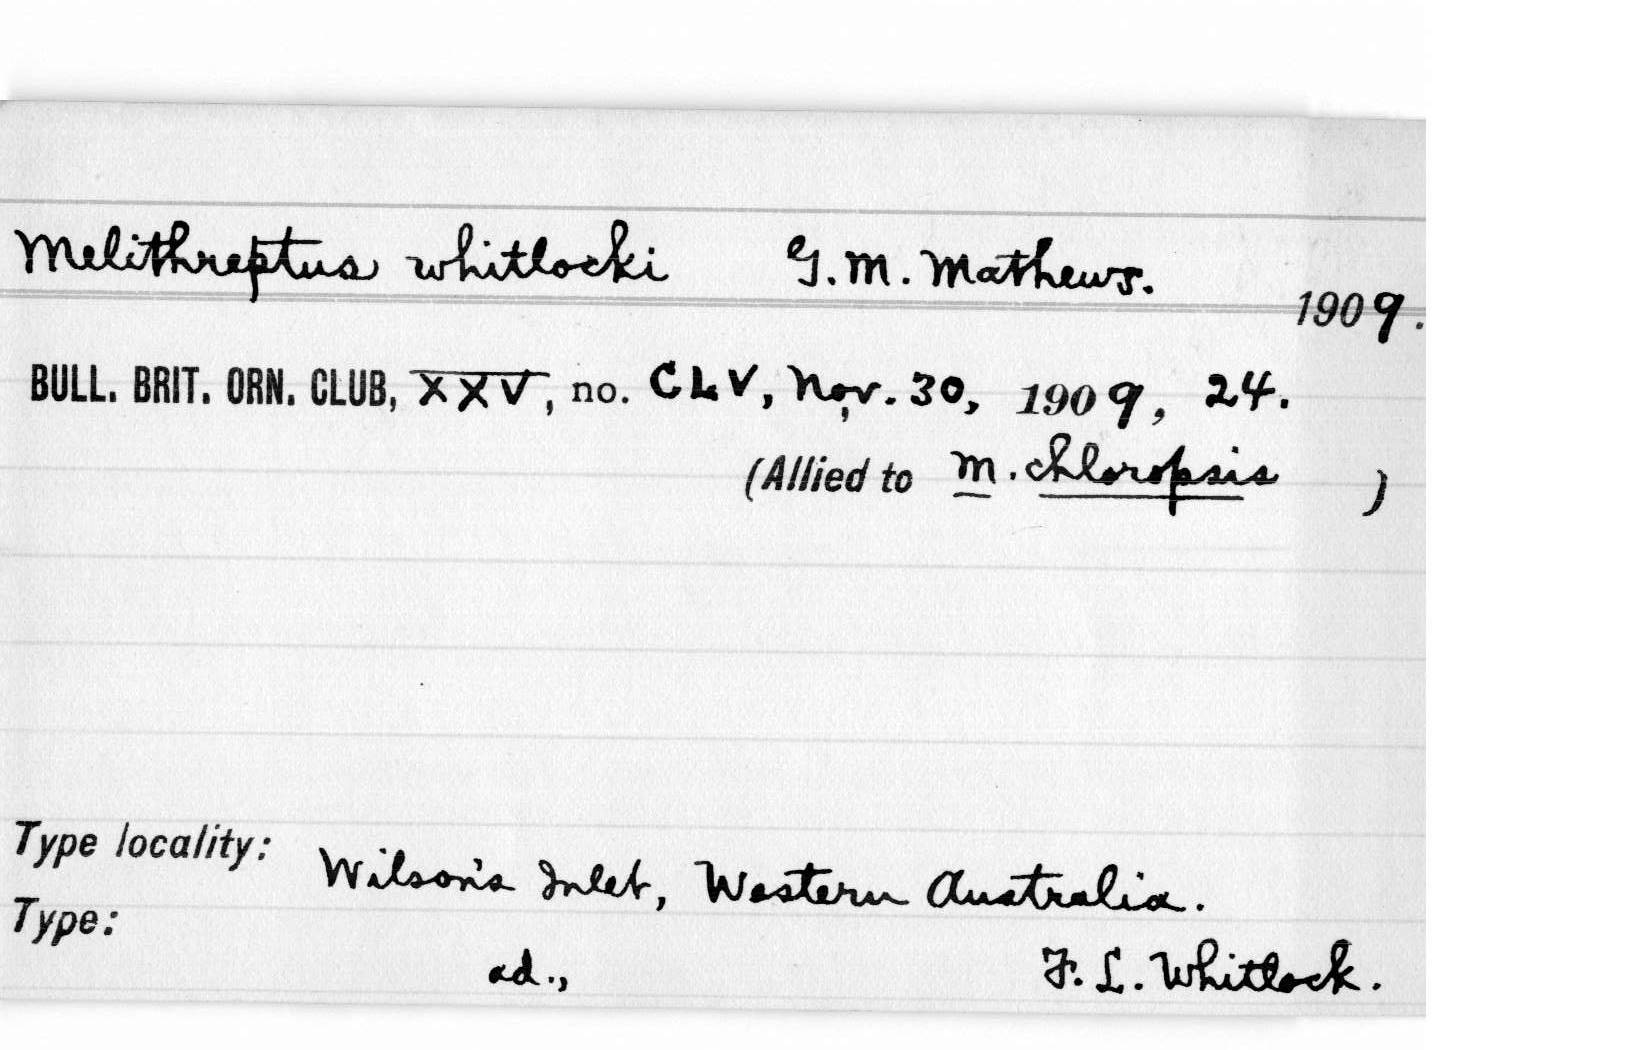 Melithreptus whitlocki G. M. Mathews.
1909.
BULL. BRIT. ORN. CLUB, XXV, no. CLV, Nov. 30, 1909, 24.
(Allied to M. chloropsis )
Type locality: Wilson's Inlet, Western Australia.
Type:
ad., F. L. Whitlock.